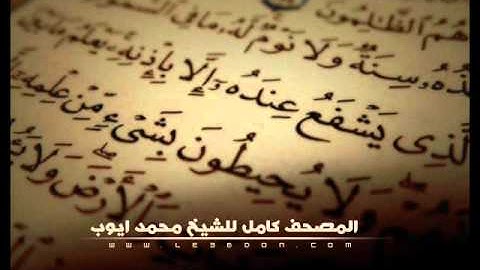 هُمُ الظَّٰلِمُونَ
سِنَةٌ وَلَا نَوْمٌ لَّهُ مَا فِي
الَّذِي يَشْفَعُ عِندَهُ إِلَّا بِإِذْنِهِ يَعْلَمُ مَا
وَلَا يُحِيطُونَ بِشَيْءٍ مِّنْ عِلْمِهِ
الْأَرْضَ وَلَا
المصحف كامل للشيخ محمد ايوب
www.le3boon.com